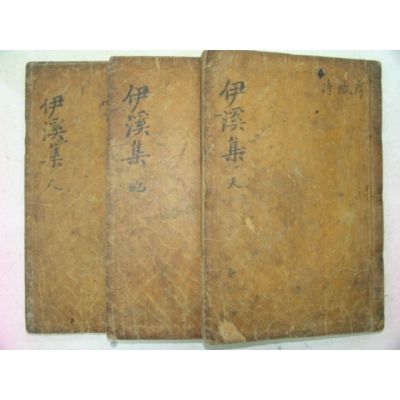 序 詩
伊溪集 天
伊溪集 地
伊溪集 人